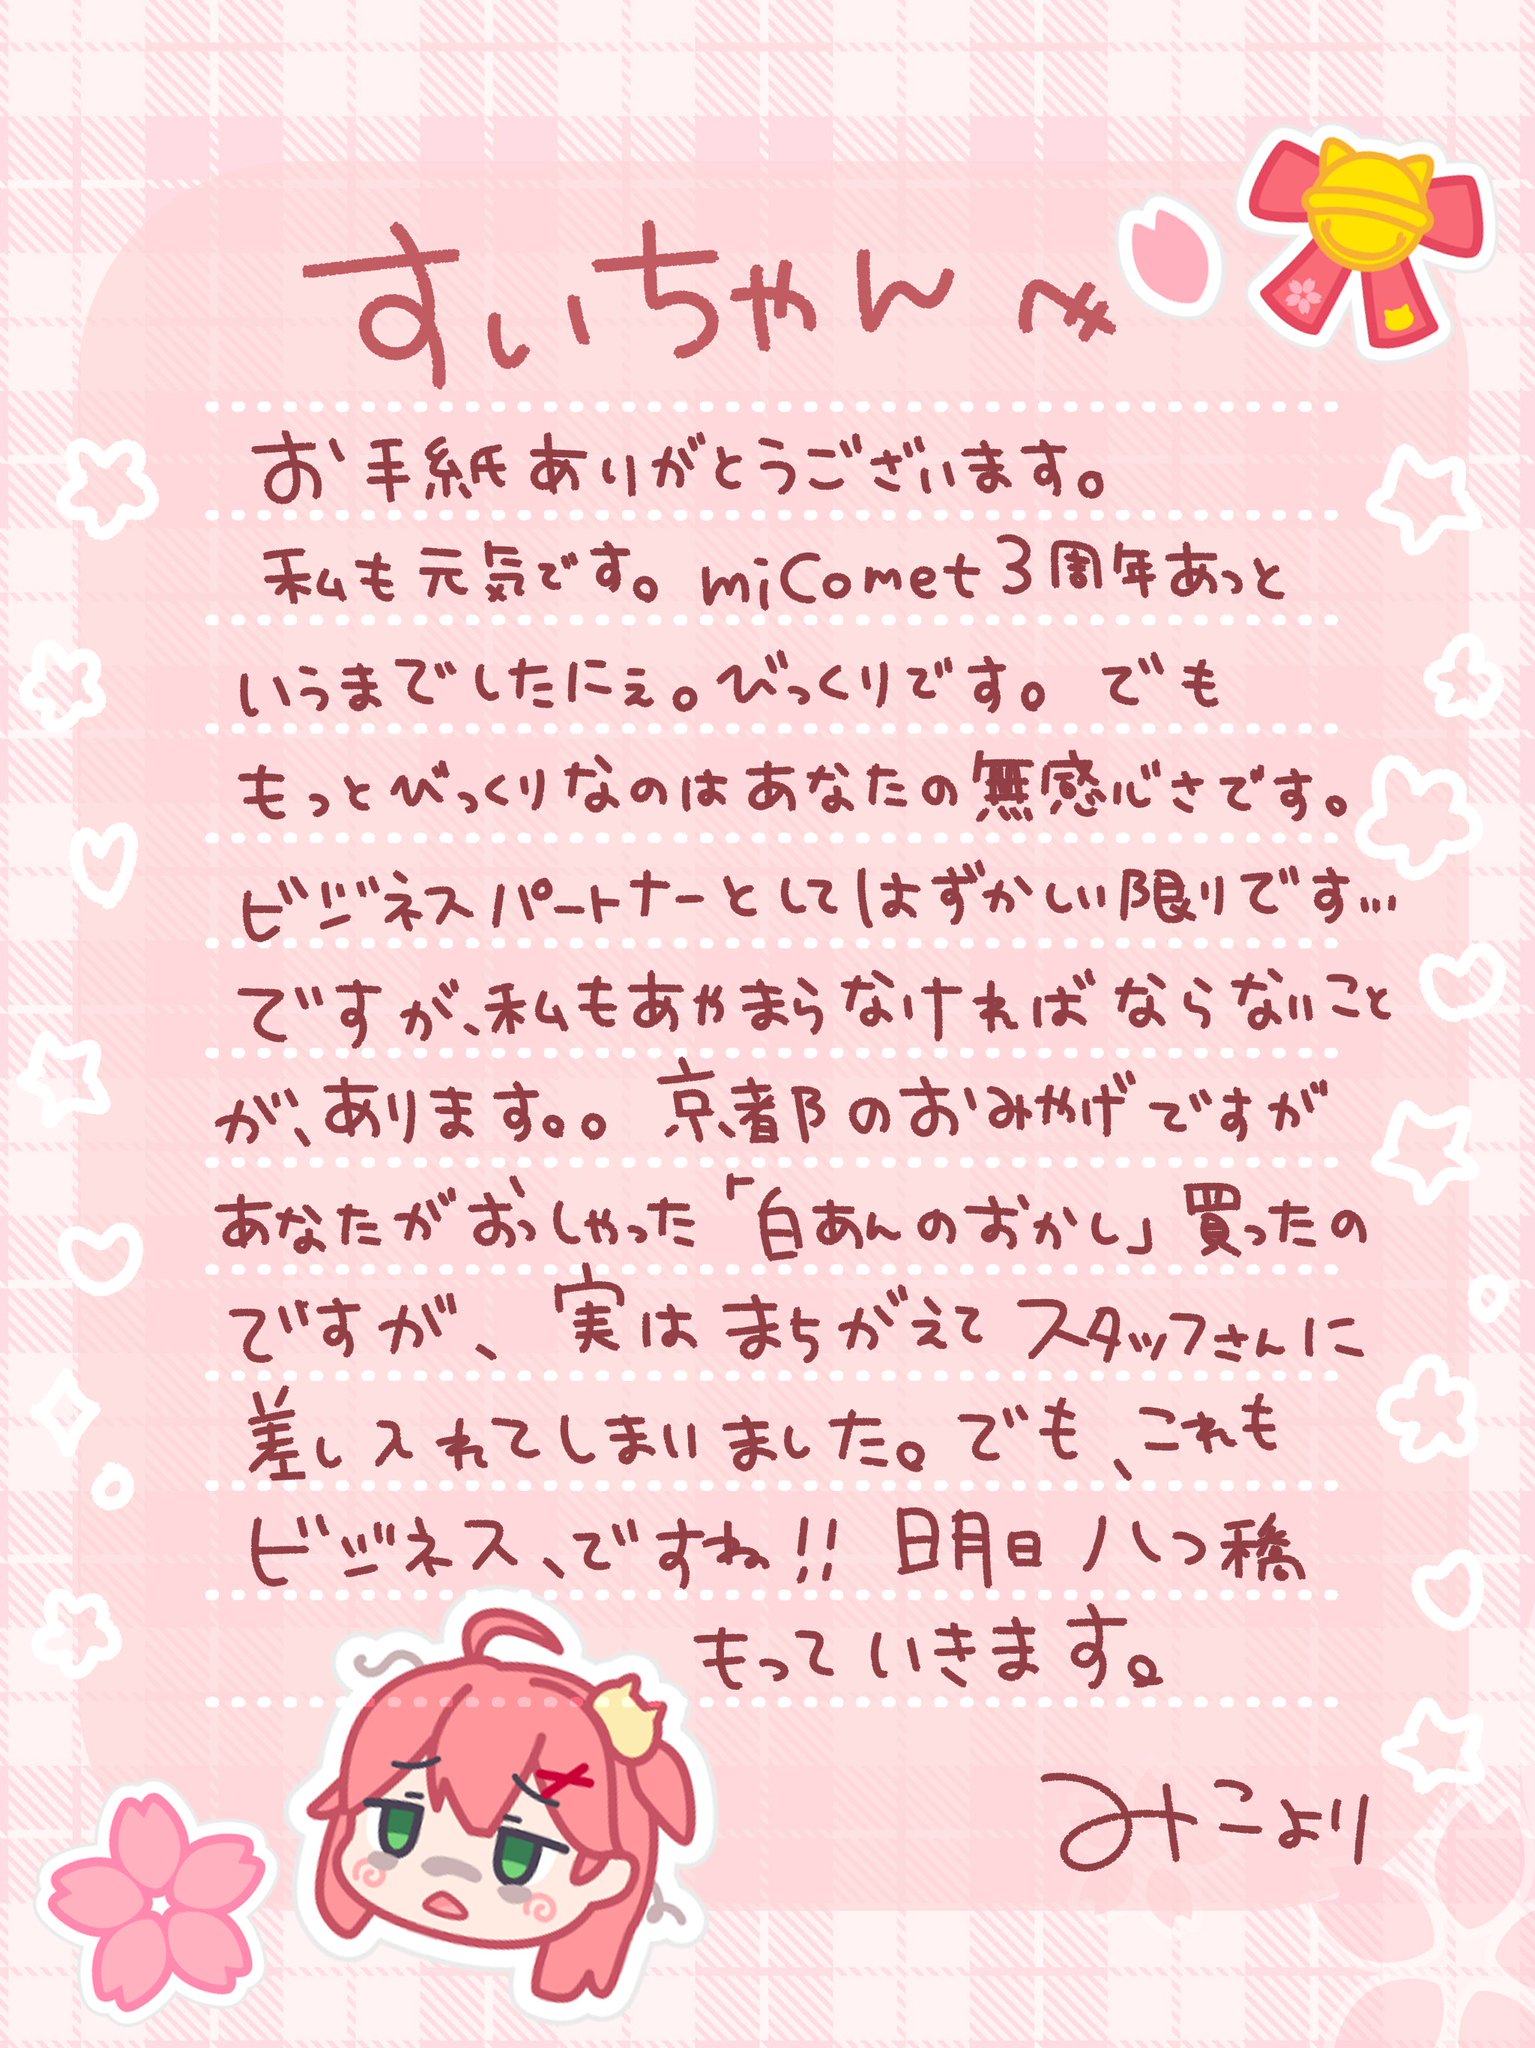 すいちゃんへ
お手紙ありがとうございます。
私も元気です。miComet3周年あっと
いうまでしたにぇ。びっくりです。でも
もっとびっくりなのはあなたの無感心さです。
ビジネスパートナーとしてはずかしい限りです...
ですが、私もあやまらなければならないこと
が、あります。。京都のおみやげですが
あなたがおっしゃった「白あんのおかし」買ったの
ですが、実はまちがえてスタッフさんに
差し入れてしまいました。でも、これも
ビジネス、ですね!!明日八つ橋
もっていきます。
みこより